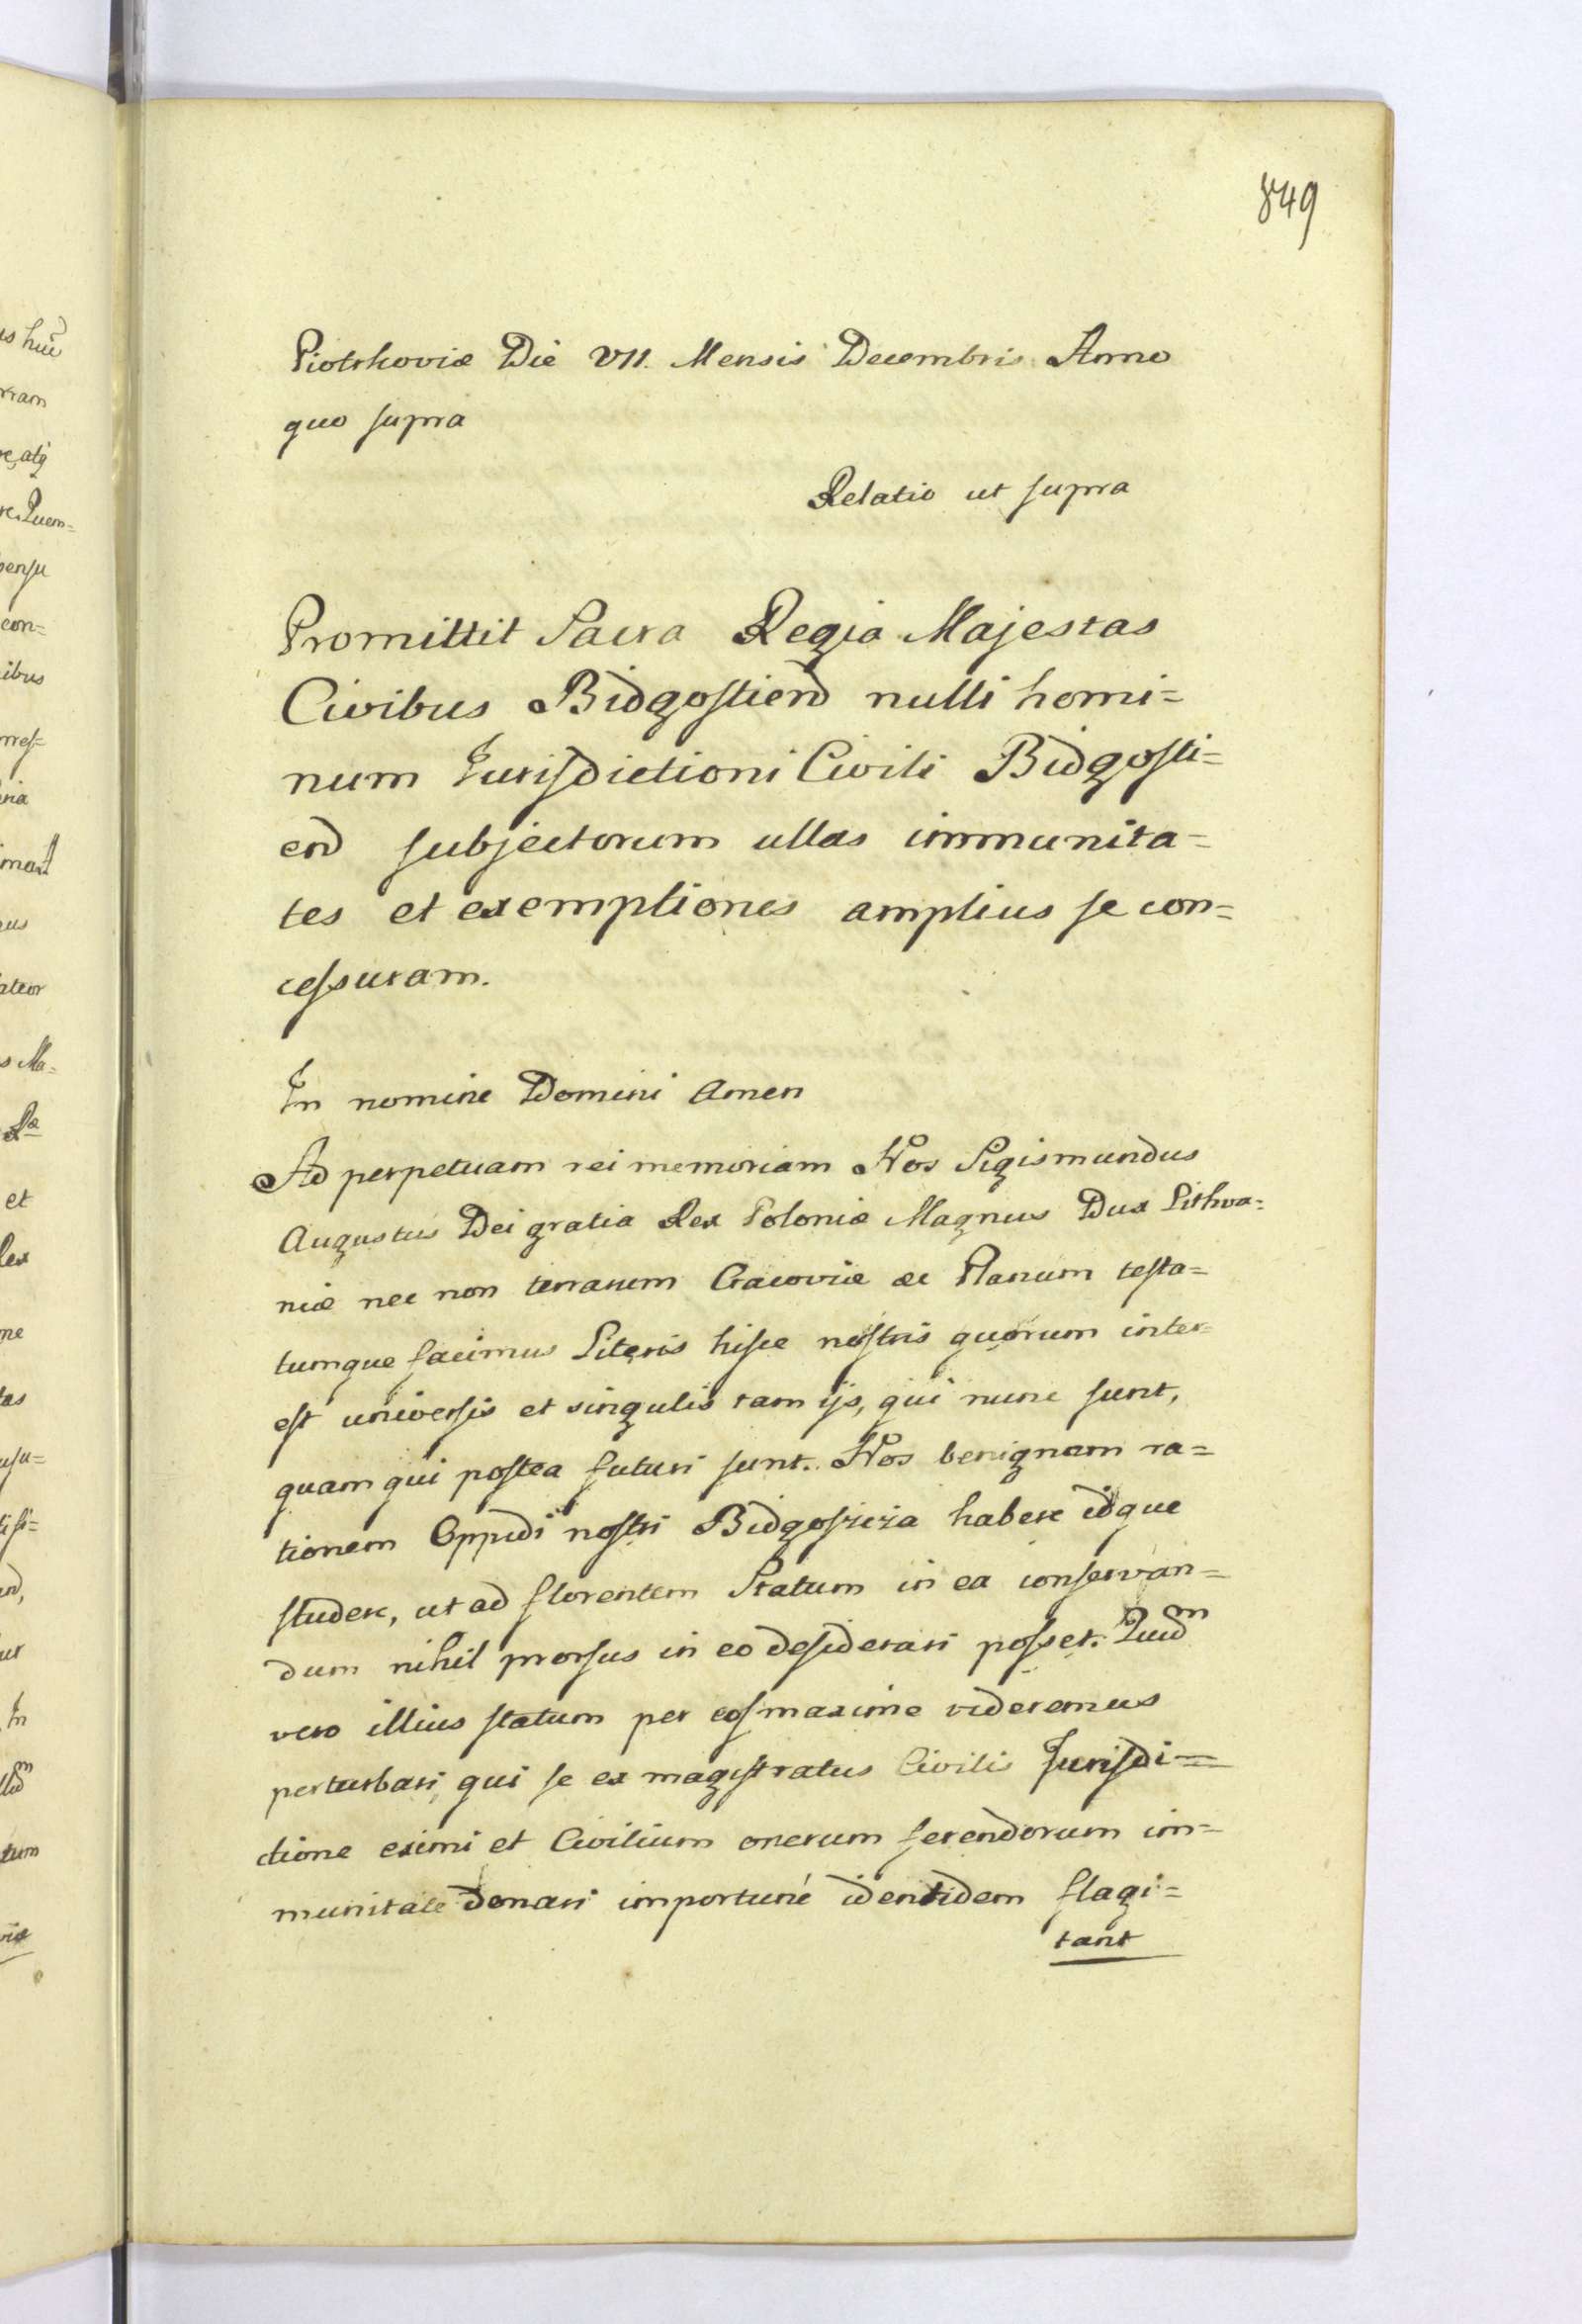 849
Piotrkoviæ Die VII. Mensis Decembris Anno
quo supra
Relatio ut supra
Promittit Sacra Regia Majestas
Civibus Bidgostien nulli homi=
num Jurisdictioni Civili Bidgosti=
en subjectorum ullas immunita=
tes et exemptiones amplius se con=
cessuram.
In nomine Domini Amen
Ad perpetuam rei memoriam Nos Sigismundus
Augustus Dei gratia Rex Poloniæ Magnus Dux Lithva=
niæ nec non terrarum Cracoviæ &c Planum testa=
tumque facimus Literis hisce nostris quorum inter=
est universis et singulis tam ijs, qui nunc sunt,
quam qui postea futuri sunt. Nos benignam ra=
tionem Oppidi nostri habere idque
studere, ut ad florentem Statum in ea conservan=
dum nihil prorsus in eo desiderari posset. Quid
vero illius statum per eos maxime videremus
perturbari, qui se ex magistratus Civilis Jurisdi=
ctione eximi et Civilium onerum ferendorum im=
munitate donari importuné identidem flagi=
tant